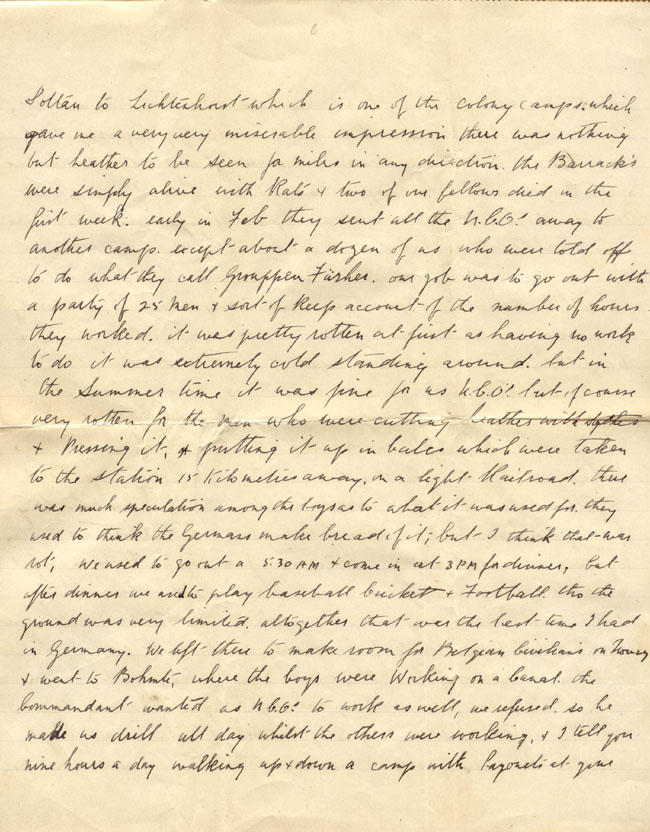 6
Soltau to Lichtenhorst which is one of the colony camps. which
gave me a very very miserable impression there was nothing
but heather to be seen for miles in any direction. the Barrack's
were simply alive with Rats & two of our fellows died in the
first week. early in Feb they sent all the N.C.O's away to
another camp. except about a dozen of us who were told off
to do what they call Grouppen Fürher. our job was to go out with
a party of 25 men & sort of keep account of the number of hours
they worked. it was pretty rotten at first as having no work
to do it was extremely cold standing around. but in
the Summer time it was fine for us N.C.O's but of course
very rotten for the men who were cutting heather with Sythes
& Pressing it, & putting it up in bales which were taken
to the station 15 Kilometres away, on a light Railroad. there
was much speculation among the boys as to what it was used for. they
used to think the Germans make bread of it; but I think that was
rot, we used to go out a 5.30 AM & come in at 3 PM for dinner, but
after dinner we used to play baseball Cricket & Football. tho the
ground was very limited. altogether that was the best time I had
in Germany. We left there to make room for Belgian Civilians on
& went to Bohmte, where the boys were Working on a Canal. the
Commandant wanted us N.C.O's to work as well, we refused. so he
made us drill all day whilst the others were working, & I tell you
nine hours a day walking up & down a camp with Bayonets at your